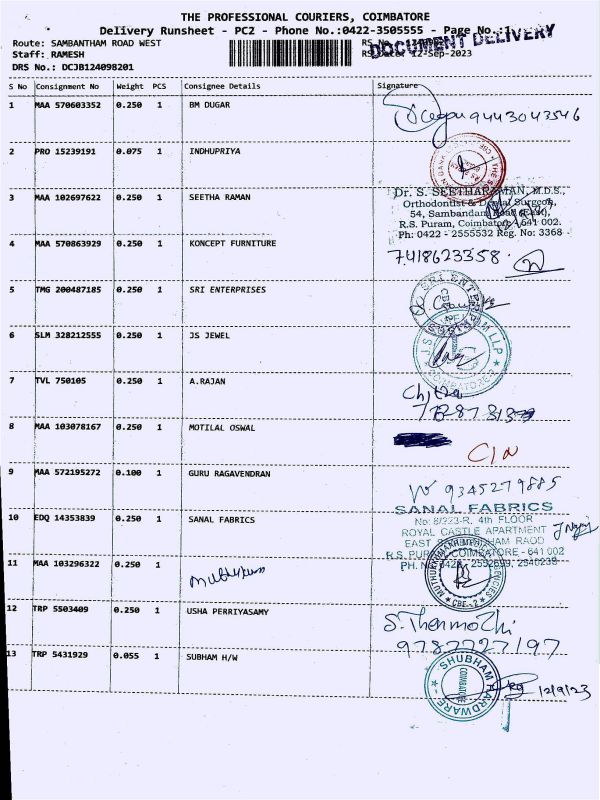 THE PROFESSIONAL COURIERS, COIMBATORE
Delivery Runsheet - PC2 - Phone No.:0422-3505555 - Page No.:1
Route: SAMBANTHAM ROAD WEST
DOCUMENT DELIVERY
Staff: RAMESH
RS Date: 12-Sep-2023
DRS No.: DCJB124098201
S No Consignment No Weight PCS Consignee Details Signature
1 MAA 570603352 0.250 1 BM DUGAR 9443043546
2 PRO 15239191 0.075 1 INDHUPRIYA
3 MAA 102697622 0.250 1 SEETHA RAMAN
Dr. S. SEETHARAMAN, M.D.S.,
Orthodontist & Dental Surgeon,
54, Sambandam Road (East),
R.S. Puram, Coimbatore - 641 002.
Ph: 0422 - 2555532 Reg. No: 3368
4 MAA 570863929 0.250 1 KONCEPT FURNITURE 7418623358
5 TMG 200487185 0.250 1 SRI ENTERPRISES
SRI ENTERPRISES
6 SLM 328212555 0.250 1 JS JEWEL
COIMBATORE
7 TVL 750105 0.250 1 A.RAJAN
Chitra
8 MAA 103078167 0.250 1 MOTILAL OSWAL
9 MAA 572195272 0.100 1 GURU RAGAVENDRAN 9345279885
10 EDQ 14353839 0.250 1 SANAL FABRICS
SANAL FABRICS
No: 8/223-R, 4th FLOOR
ROYAL CASTLE APARTMENT
R.S. PURAM, COIMBATORE - 641 002
11 MAA 103296322 0.250 1
CBE-2
12 TRP 5503409 0.250 1 USHA PERRIYASAMY
S. Thenmozhi
9787727197
13 TRP 5431929 0.055 1 SUBHAM H/W
SHUBHAM HARDWARE
COIMBATORE
12/9/23